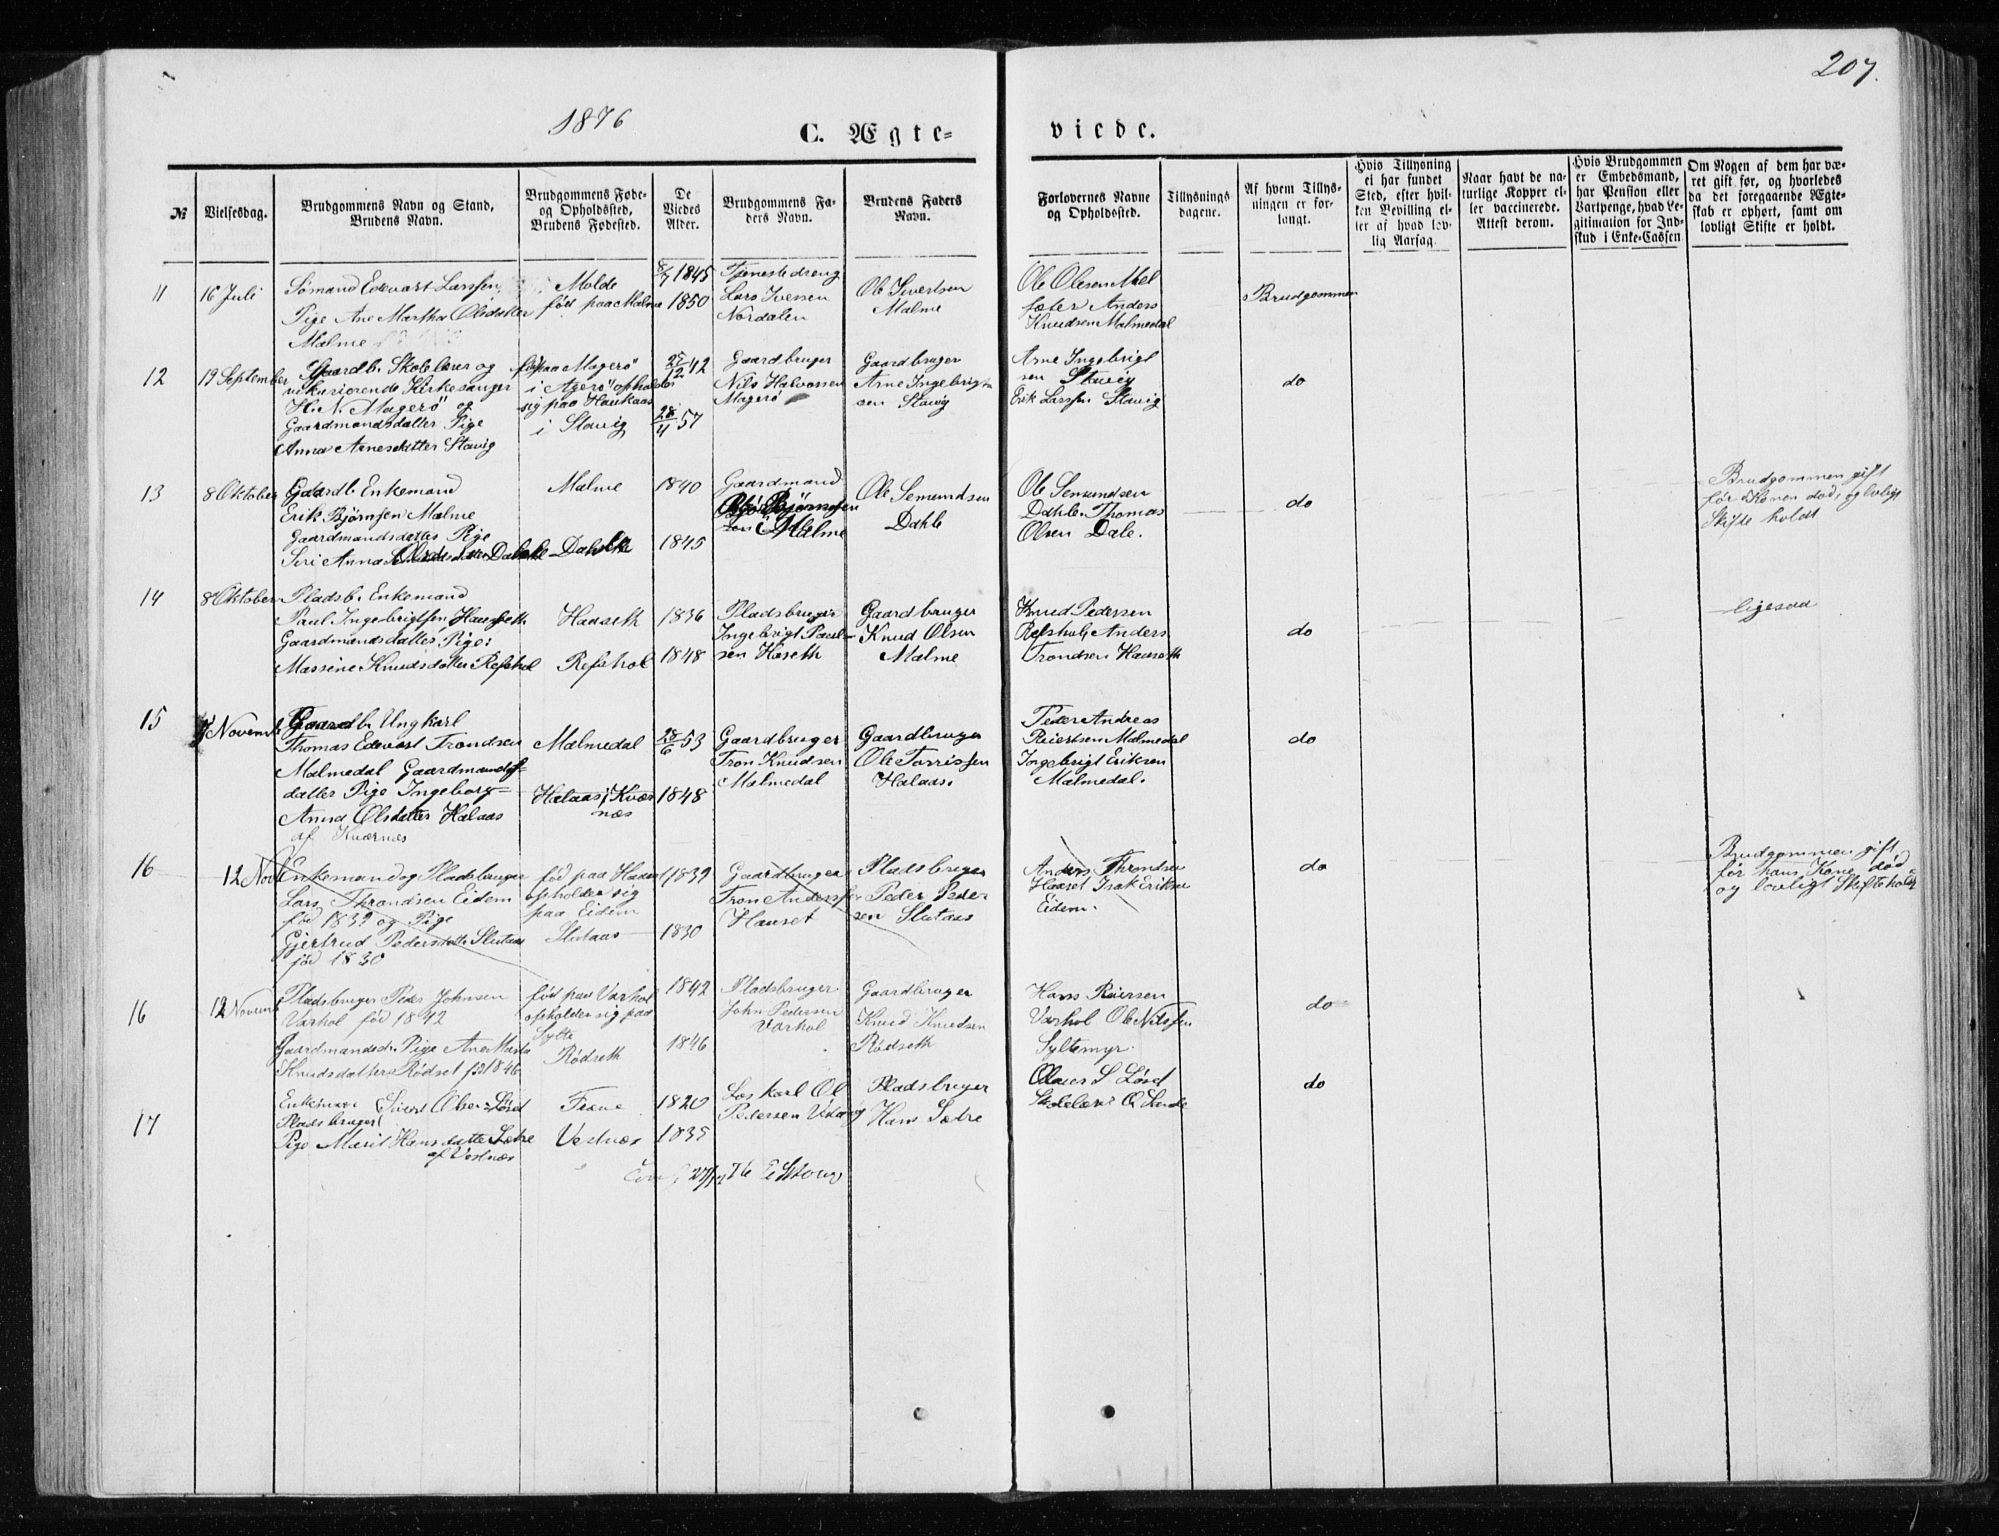 207.
1876
C. Ægte=
viede.
№
Vielsesdag.
Brudgommens Navn og Stand,
Brudens Navn.
Brudgommens Føde-
og Opholdssted,
Brudens Fødested.
De
Viedes
Alder.
Brudgommens Fa-
ders Navn.
Brudens Faders
Navn.
Forlovernes Navne
og Opholdssted.
Tillysnings
dagene.
Af hvem Tillys-
ningen er for-
langt.
Hvis Tillysning
ei har fundet
Sted, efter hvil-
ken Bevilling el-
ler af hvad lov-
lig Aarsag.
Naar havt de na-
turlige Kopper el-
ler vaccinerede.
Attest derom.
Hvis Brudgommen
er Embedsmand,
har Pension eller
Vartpenge, hvad Le-
gitimation for Ind-
skud i Enke-Cassen
Om Nogen af dem har væ-
ret gift før, og hvorledes
da det foregaaende Ægte-
skab er ophørt, samt om
lovligt Skifte er holdt.
11
16 Juli
Sømand Edevart Larssen
Pige Ane Martha Olsdatter
Malme
Molde
født paa Malme
8/7 1845
1850
Tjenestedreng
Lars Iversen
Nordalen
Ole Sivertsen
Malme
Ole Olesen Mel
fæter Anders
Knudsen Malmedal
Brudgommen
12
19 September
Gaardb. Skolelærer og
vikarierende Kirkesanger
H. N. Magerö og
Gaardmandsdatter Pige
Anna Arnesdatter Stavig
født paa Magerö
i Agerö opholder
sig paa Haukaas
i Stavig
25/12 42
28/4 57
Gaardbruger
Nils Halvorsen
Magerö
Gaardbruger
Arne Ingebrigt
sen Stavig
Arne Ingebrigt
sen Stavig
Erik Larssen Stavig
do
13
8 Oktober
Gaardb. Enkemand
Erik Bjørnsen Malme
Gaardmandsdatter Pige
Siri Anna Olsdatter Dahle
Malme
Dahle
1840
1845
Gaardmand
Malme
Ole Semundsen
Dahle
Ole Semundsen
Dahle. Thomas
Olsen Dale.
do
Brudgommen gift
før Konen død, og lovligt
Skifte holdt
14
8 Oktober
Pladsb. Enkemand
Paul Ingebrigtsen Hauseth
Gaardmandsdatter Pige:
Massine Knudsdatter Refshol
Haaseth
Refshol
1836
1848
Pladsbruger
Ingebrigt Paul-
sen Haseth
Gaardbruger
Knud Olsen
Malme
Knud Pedersen
Refshol, Anders
Trondsen Haaseth
do
ligesaa
15
Novemb
Gaardb. Ungkarl
Thomas Edevart Trondsen
Malmedal Gaardmands-
datter Pige Ingeborg=
Anna Olsdatter Halaas
af Kværnæs
Malmedal
Halaas i Kvær
næs
28/6 53
1848
Gaardbruger
Tron Knudsen
Malmedal
Gaardbruger
Ole Torrissen
Halaas.
Peder Andreas
Reiertsen Malmedal
Ingebrigt Eriksen
Malmedal.
do
16
12 Novb
Enkemand og Pladsbruger
Lars Throndsen Eidem
fød 1839 og Pige
Gjertrud Pedersdatter Slutaas
fød 1830
fød paa Haaset
opholder sig
paa Eidem
Slutaas
1839
1830
Gaardbruger
Tron Anderssen
Hauset
Pladsbruger
Peder Peder-
sen Slutaas
Anders Throndsen
Haaset Isak Eriksen
Eidem.
do
Brudgommen gift
før hans Kone død
og lovligt Skifte holdt
16
12 Novemb
Pladsbruger Peder Johnsen
Varhol fød 1842
Gaardmandsd. Pige Ane Marta
Knudsdatter Rødset fød 1846
fød paa Varhol
opholder sig paa
Sylte
Rödseth
1842
1846
Pladsbruger
John Pedersen
Varhol
Gaardbruger
Knud Knudsen
Rødseth
Hans Reiersen
Varhol Ole Nilssen
Syltemyr.
do
17
Enkemand Sivert Olsen Löset
Pladsbruger
Pige Marit Hansdatter Sætre
af Vestnæs
Fræne
Vestnæs
1820
1835
Løskarl Ol
Pedersen
Pladsbruger
Hans Sætre
Olaus S Löset
do